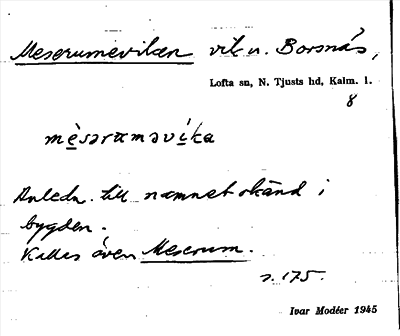 Meserumeviken vik u. Borsnäs,
Lofta sn, N. Tjusts hd, Kalm. l.
8
mèsərαməvika
Anledn. till namnet okänd i
bygden.
Kallas även Meserum.
s. 175.
Ivar Modéer 1945